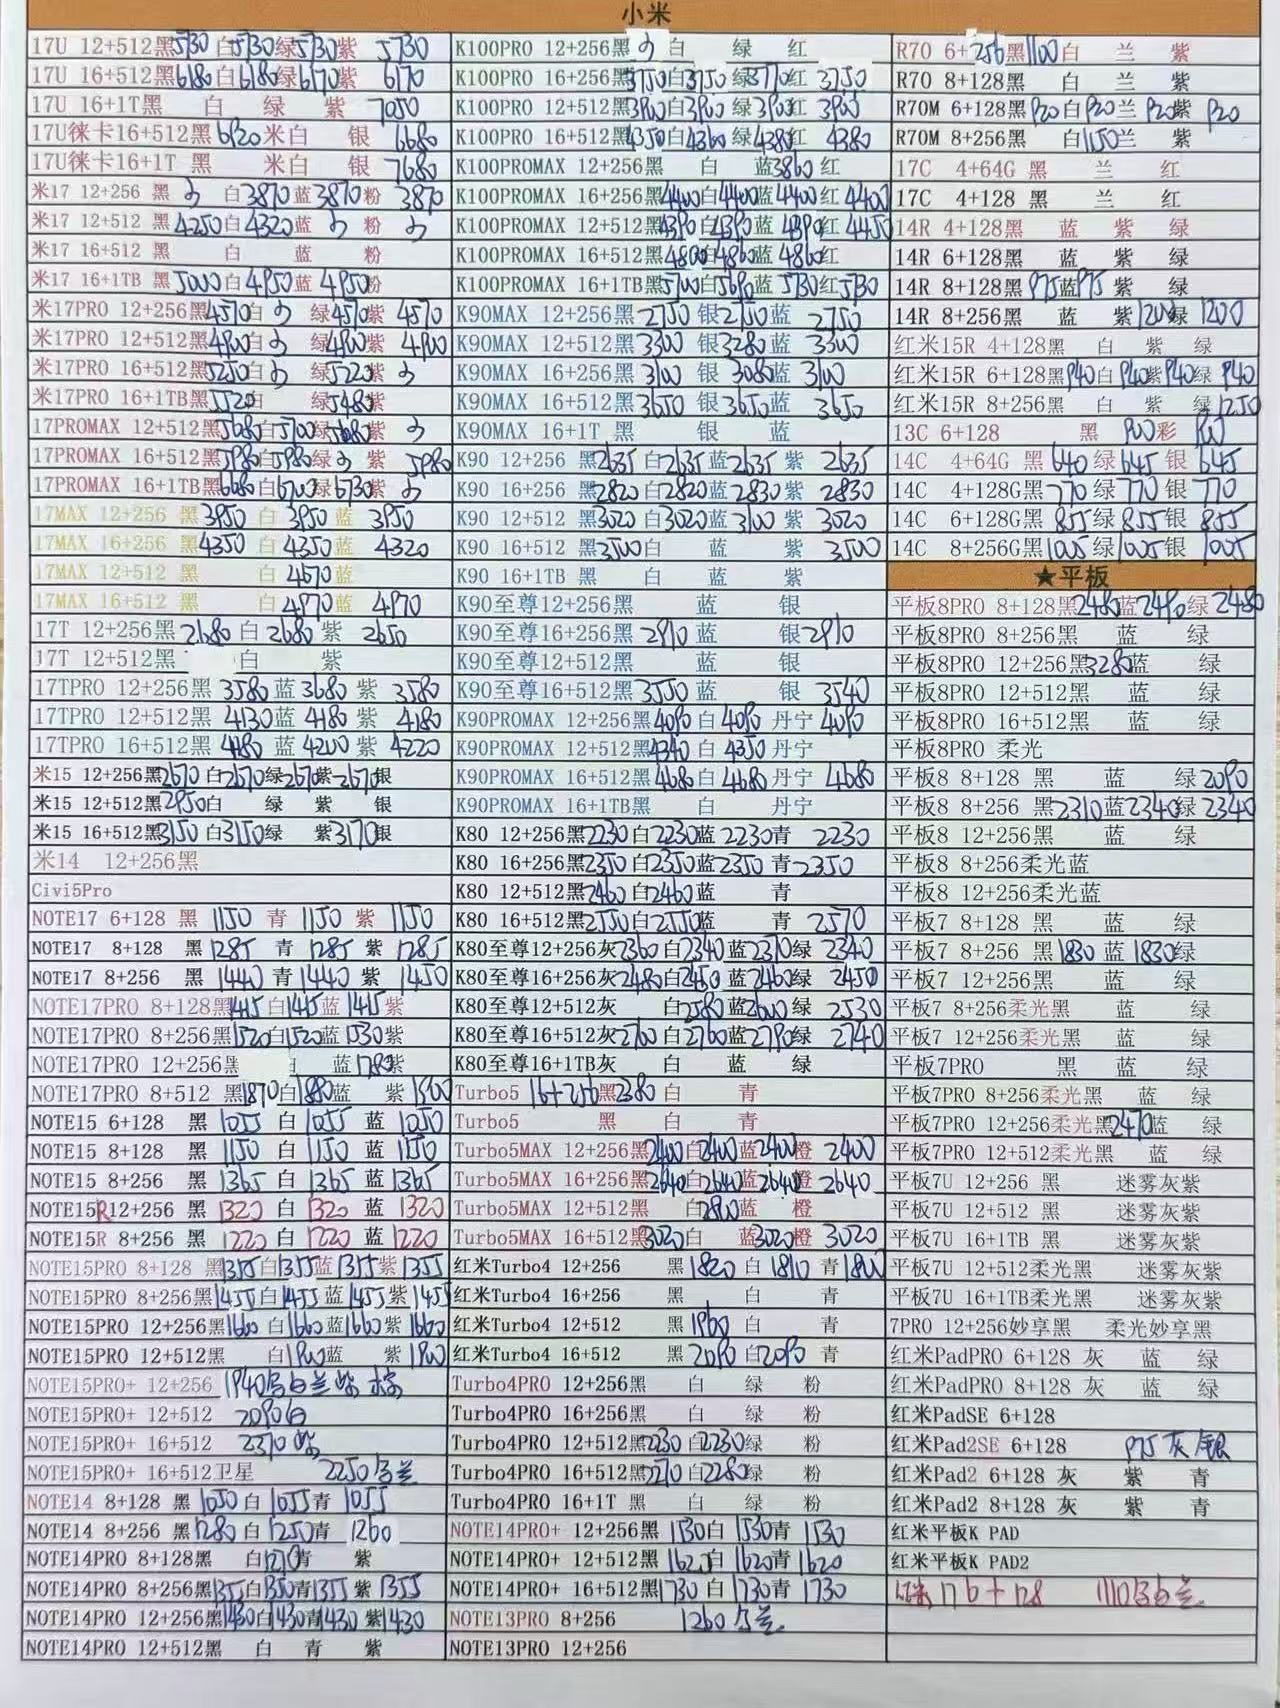 小米
17U 12+512黑5730白5730绿5730紫 5730
17U 16+512黑6180白6180绿6170紫 6170
17U 16+1T黑 白 绿 紫 7050
17U徕卡16+512黑6920米白 银 6680
17U徕卡16+1T 黑 米白 银 7680
米17 12+256 黑 白3870蓝3870粉 3870
米17 12+512 黑4250白4320蓝 粉
米17 16+512 黑 白 蓝 粉
米17 16+1TB 黑5000白4950蓝4950粉
米17PRO 12+256黑4570白 绿4570紫 4570
米17PRO 12+512黑4900白 绿4900紫 4900
米17PRO 16+512黑5250白 绿5220紫
米17PRO 16+1TB黑5520白 绿5480紫
17PROMAX 12+512黑5680白5700绿5680紫
17PROMAX 16+512黑5980白5980绿 紫 5980
17PROMAX 16+1TB黑6680白6700绿6730紫
17MAX 12+256 黑3950 白 3950蓝 3950
17MAX 16+256 黑4350 白 4350蓝 4320
17MAX 12+512 黑 白 4670蓝
17MAX 16+512 黑 白4970蓝 4970
17T 12+256黑2680 白 2680 紫 2650
17T 12+512黑 白 紫
17TPRO 12+256黑 3580蓝 3680 紫 3580
17TPRO 12+512黑 4130蓝 4180 紫 4180
17TPRO 16+512黑 4180 蓝 4200 紫 4220
米15 12+256黑2670白2670绿2670紫2670银
米15 12+512黑2950白 绿 紫 银
米15 16+512黑3150白3150绿 紫3170银
米14 12+256黑
Civi5Pro
NOTE17 6+128 黑 1150 青 1150 紫 1150
NOTE17 8+128 黑 1285 青 1285 紫 1285
NOTE17 8+256 黑 1440 青 1440 紫 1450
NOTE17PRO 8+128黑1415白1415蓝1415紫
NOTE17PRO 8+256黑1520白1520蓝1530紫
NOTE17PRO 12+256黑 蓝1780紫
NOTE17PRO 8+512 黑1870白1880蓝 紫1900
NOTE15 6+128 黑 1055 白 1055 蓝 1050
NOTE15 8+128 黑 1150 白 1150 蓝 1150
NOTE15 8+256 黑 1365 白 1365 蓝1365
NOTE15R12+256 黑 1320 白 1320 蓝 1320
NOTE15R 8+256 黑 1220 白 1220 蓝 1220
NOTE15PRO 8+128 黑1355白1355蓝1355紫1355
NOTE15PRO 8+256黑1455白1455蓝1455紫1455
NOTE15PRO 12+256黑1660 白1660蓝1660紫1660
NOTE15PRO 12+512黑 白1900蓝 紫1900
NOTE15PRO+ 12+256 1940
NOTE15PRO+ 12+512 2090白
NOTE15PRO+ 16+512 2370紫
NOTE15PRO+ 16+512卫星 2250乌兰
NOTE14 8+128 黑 1050 白 1055青 1055
NOTE14 8+256 黑1280 白 1250青 1260
NOTE14PRO 8+128黑 白1270青 紫
NOTE14PRO 8+256黑1355白1350青1355 紫1355
NOTE14PRO 12+256黑1430白1430青1430 紫1430
NOTE14PRO 12+512黑 白 青 紫
K100PRO 12+256黑 白 绿 红
K100PRO 16+256黑3750白3750绿3770红 3750
K100PRO 12+512黑3900白3900绿3900红 3900
K100PRO 16+512黑4350白4360绿4380红 4380
K100PROMAX 12+256黑 白 蓝3860红
K100PROMAX 16+256黑4400白4400蓝4400红4400
K100PROMAX 12+512黑4390白4390蓝4390红4450
K100PROMAX 16+512黑4800白4860蓝4860红
K100PROMAX 16+1TB黑5700白5690蓝5730红5730
K90MAX 12+256黑2750 银2750蓝 2750
K90MAX 12+512黑3300 银3280蓝 3300
K90MAX 16+256黑3100 银 3080蓝 3100
K90MAX 16+512黑3650 银3650蓝 3650
K90MAX 16+1T 黑 银 蓝
K90 12+256 黑2635白2635蓝2635 紫 2635
K90 16+256 黑2820白2820蓝2830紫 2830
K90 12+512 黑3020白3020蓝3100紫 3020
K90 16+512 黑3500白 蓝 紫 3500
K90 16+1TB 黑 白 蓝 紫
K90至尊12+256黑 蓝 银
K90至尊16+256黑2910 蓝 银2910
K90至尊12+512黑 蓝 银
K90至尊16+512黑3550 蓝 银 3540
K90PROMAX 12+256黑4090 白 4090 丹宁 4090
K90PROMAX 12+512黑4340 白 4350 丹宁
K90PROMAX 16+512黑4680 白 4680 丹宁 4680
K90PROMAX 16+1TB黑 白 丹宁
K80 12+256黑2230白2230蓝 2230青 2230
K80 16+256黑2350白2350蓝2350 青2350
K80 12+512黑2460白2460蓝 青
K80 16+512黑2550白2550蓝 青 2570
K80至尊12+256灰2360白2340蓝2370绿 2340
K80至尊16+256灰2480白2450蓝2460绿 2450
K80至尊12+512灰 白2580蓝2600绿 2530
K80至尊16+512灰2700白2760蓝2790绿 2740
K80至尊16+1TB灰 白 蓝 绿
Turbo5 16+256黑2380 白 青
Turbo5 黑 白 青
Turbo5MAX 12+256黑2400白2400蓝2400橙 2400
Turbo5MAX 16+256黑2640白2640蓝2640橙 2640
Turbo5MAX 12+512黑 白2800蓝 橙
Turbo5MAX 16+512黑3020白 蓝3020橙 3020
红米Turbo4 12+256 黑1820 白 1810 青1800
红米Turbo4 16+256 黑 白 青
红米Turbo4 12+512 黑 1960 白 青
红米Turbo4 16+512 黑 2090 白2090 青
Turbo4PRO 12+256黑 白 绿 粉
Turbo4PRO 16+256黑 白 绿 粉
Turbo4PRO 12+512黑2230 白2230绿 粉
Turbo4PRO 16+512黑2270 白2280绿 粉
Turbo4PRO 16+1T 黑 白 绿 粉
NOTE14PRO+ 12+256黑 1530白 1530青 1530
NOTE14PRO+ 12+512黑1625白 1620青 1620
NOTE14PRO+ 16+512黑1730 白 1730青 1730
NOTE13PRO 8+256 1260乌兰
NOTE13PRO 12+256
R70 6+256黑1100白 兰 紫
R70 8+128黑 白 兰 紫
R70M 6+128黑920白920兰 920紫 920
R70M 8+256黑 白1150兰 紫
17C 4+64G 黑 兰 红
17C 4+128 黑 兰 红
14R 4+128黑 蓝 紫 绿
14R 6+128黑 蓝 紫 绿
14R 8+128黑975蓝975 紫 绿
14R 8+256黑 蓝 紫1200绿 1200
红米15R 4+128黑 白 紫 绿
红米15R 6+128黑940白 940紫940绿 940
红米15R 8+256黑 白 紫 绿1250
13C 6+128 黑 900彩 900
14C 4+64G 黑 640 绿645 银 645
14C 4+128G黑 770 绿 770 银 770
14C 6+128G黑 855绿 855银 855
14C 8+256G黑1005绿1005银 1005
★平板
平板8PRO 8+128黑2480蓝2490绿 2480
平板8PRO 8+256黑 蓝 绿
平板8PRO 12+256黑3280蓝 绿
平板8PRO 12+512黑 蓝 绿
平板8PRO 16+512黑 蓝 绿
平板8PRO 柔光
平板8 8+128 黑 蓝 绿2090
平板8 8+256 黑2310蓝2340绿 2340
平板8 12+256黑 蓝 绿
平板8 8+256柔光蓝
平板8 12+256柔光蓝
平板7 8+128 黑 蓝 绿
平板7 8+256 黑1830 蓝 1830绿
平板7 12+256黑 蓝 绿
平板7 8+256柔光黑 蓝 绿
平板7 12+256柔光黑 蓝 绿
平板7PRO 黑 蓝 绿
平板7PRO 8+256柔光黑 蓝 绿
平板7PRO 12+256柔光黑2470蓝 绿
平板7PRO 12+512柔光黑 蓝 绿
平板7U 12+256 黑 迷雾灰紫
平板7U 12+512 黑 迷雾灰紫
平板7U 16+1TB 黑 迷雾灰紫
平板7U 12+512柔光黑 迷雾灰紫
平板7U 16+1TB柔光黑 迷雾灰紫
7PRO 12+256妙享黑 柔光妙享黑
红米PadPRO 6+128 灰 蓝 绿
红米PadPRO 8+128 灰 蓝 绿
红米PadSE 6+128
红米Pad2SE 6+128 975灰 银
红米Pad2 6+128 灰 紫 青
红米Pad2 8+128 灰 紫 青
红米平板K PAD
红米平板K PAD2
红米 17 6+128 1110